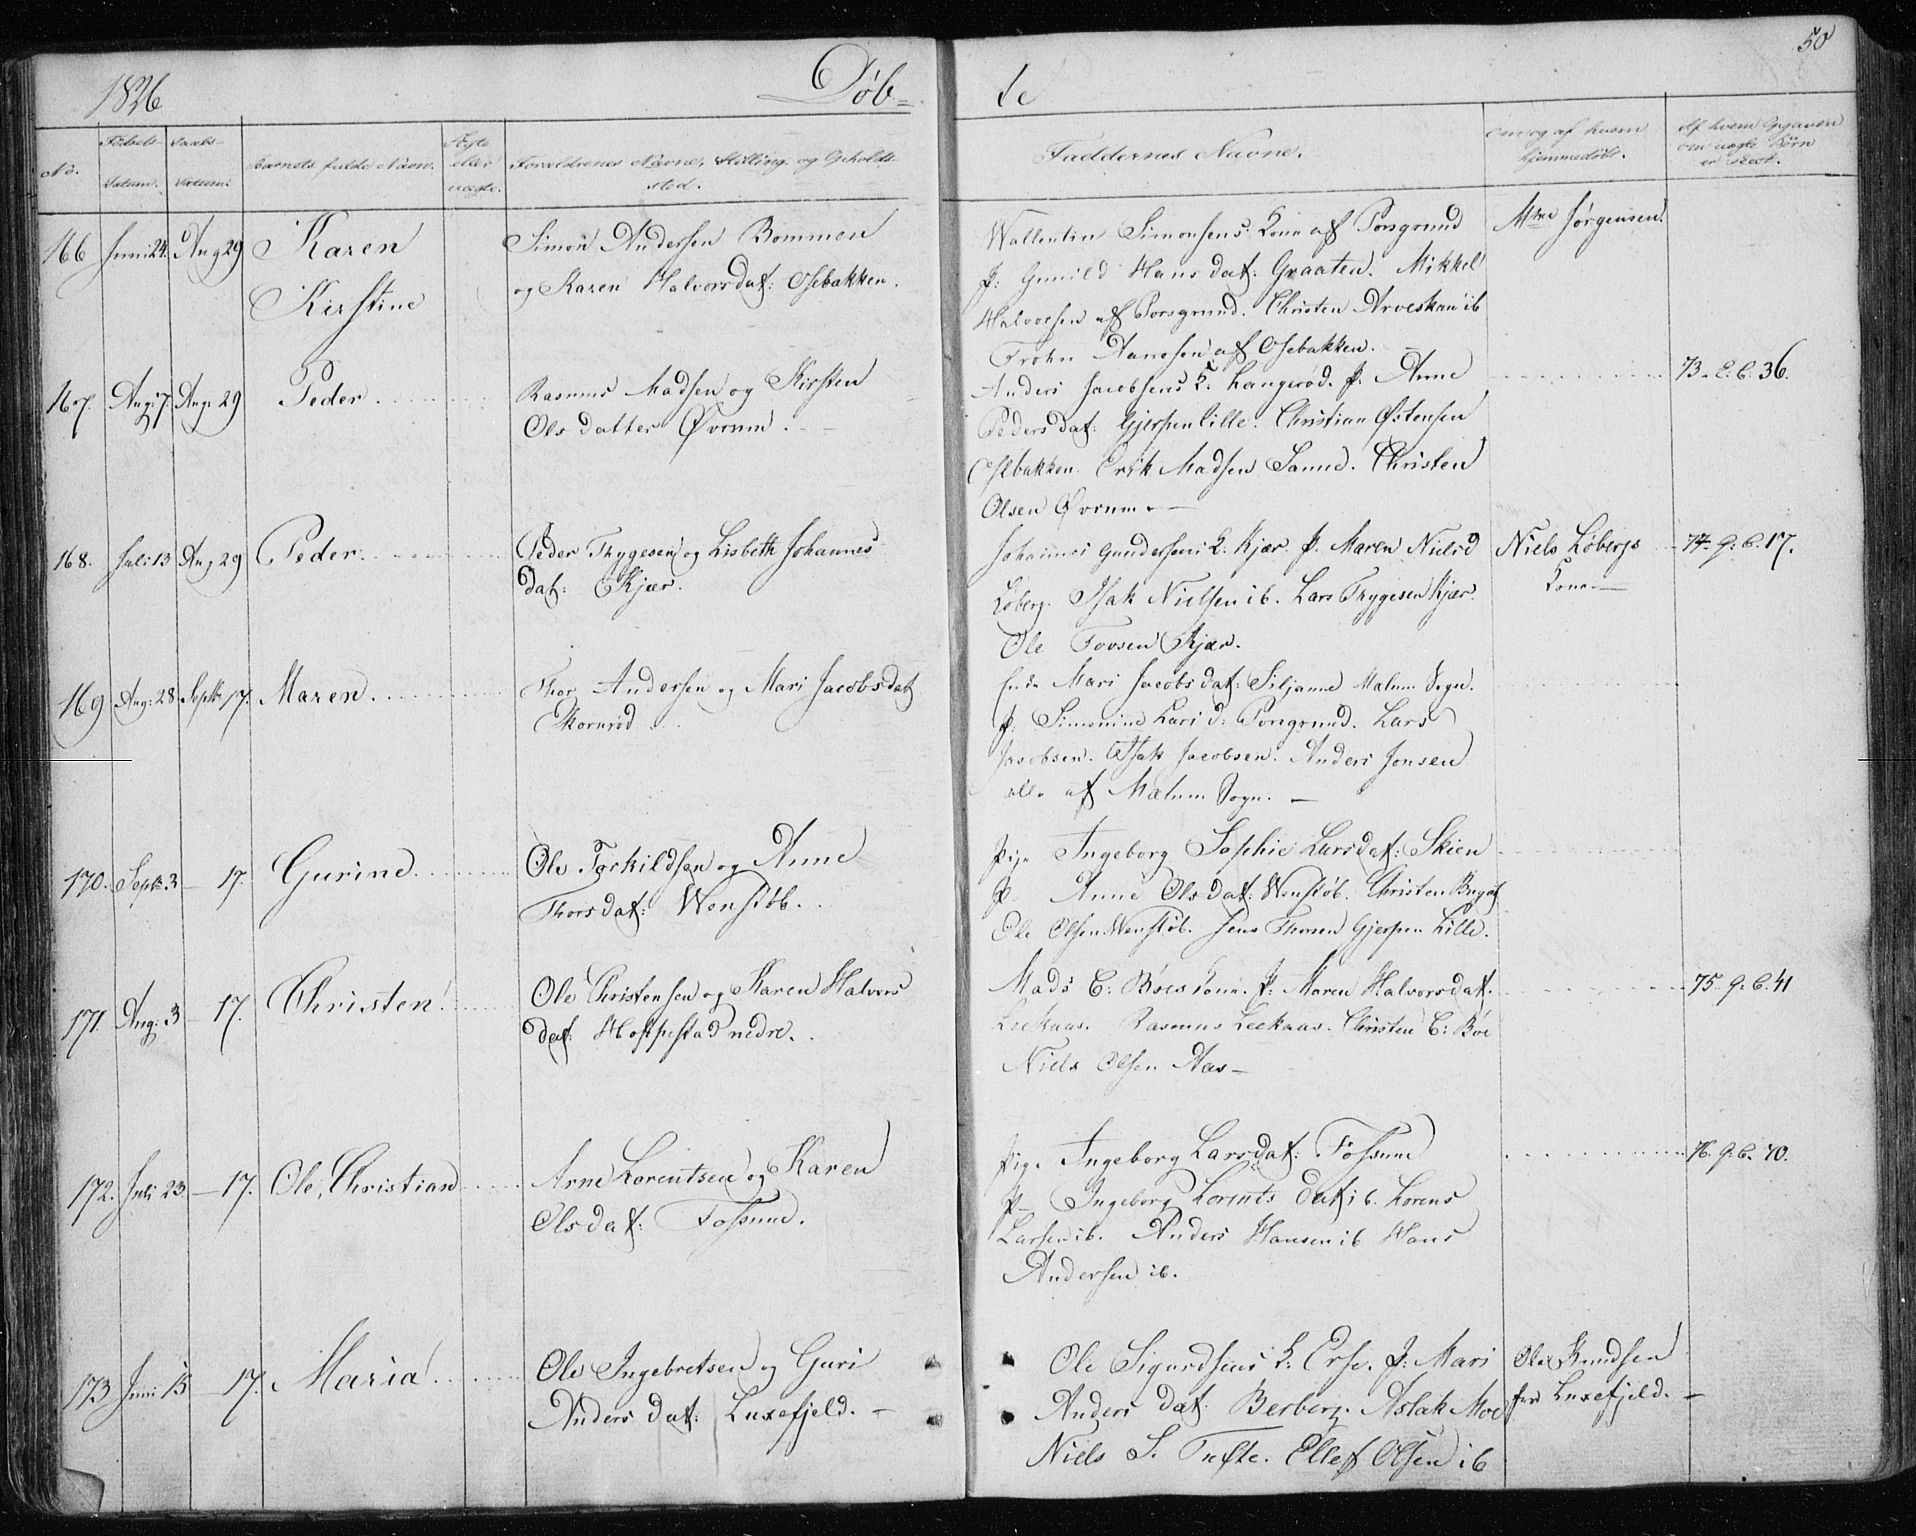 50
1826 Døb= te
No. Fødsels- Daabs- Barnets fulde Navn. Ægte eller uægte. Forældrenes Navne, Stilling og Opholds-
Datum. Datum. sted.
Faddernes Navne. Om og af hvem hjemmedøbt.
166 Juni 24. Aug 29 Karen Kirstine
Simon Andersen Bommen
og Karen Halvorsdat: Osebakken.
Wallentin Simonsens Kone af Porsgrund
P: Gunild Hansdat: Graaten. Mikkel
Halvorsen af Porsgrund. Christen Arveskau ib
Aanesen af Osebakken.
Mme Jørgensen.
167. Aug: 7. Aug: 29 Peder
Rasmus Madsen og Kirsten
Olsdatter Øvrum.
Anders Jacobsens K. Langerød. P: Anne
Pedersdat: Gjerpen lille. Christian Østensen
Osebakken. Erik Madsen Sanne. Christen
Olsen Øvrum.
73. 36.
168. Juli 13 Aug 29 Peder.
Peder Thygesen og Lisbeth Johannes
dat: Kjær.
Johannes Gundersens K. Kjær. P. Maren Niels d
Løberg. Isak Nielsen ib. Lars Thygesen Kjær.
Ole Tovsen Kjær.
Niels Løbergs
Kone.
74. 17.
169 Aug: 28 Septb 17. Maren.
Thor Andersen og Mari Jacobsdat
Skornrød
Enke Mari Jacobsdat: Siljanne Melum Sogn.
P. Simonine Lars d: Porsgrund. Lars
Jacobsen. Isak Jacobsen. Anders Jonsen
alle af Melum Sogn.
170. Septb. 3 — 17. Gurine
Ole Torkildsen og Anne
Thorsdat: Wenstøb.
Pige Ingeborg Sophie Larsdat: Skien
P. Anne Olsdat: Wenstøb. Christen
Ole Olsen Wenstøb. Jens Thorsen Gjerpen Lille.
171. Aug: 3 — 17. Christen
Ole Christensen og Karen Halvors
dat: Hoppestad nedre.
Mads C: Böes Kone. P: Maren Halvorsdat.
Leekaas. Rasmus Leekaas. Christen C: Böe
Niels Olsen Aas—
75. 41
172. Juli 23. — 17. Ole, Christian
Arne Lorentsen og Karen
Olsdat: Fossum.
Pige Ingeborg Larsdat: Fossum
P— Ingeborg Lorentsdat ib. Lorens
Larsen ib. Anders Hansen ib Hans
Andersen ib.
76. 70.
173 Juni 15 — 17. Maria
Ole Ingebretsen og Guri
Andersdat: Luxefjeld. —
Ole Sigurdsens K. P: Mari
Anders dat: Berberg. Aslak Moe
Niels S. Ellef Olsen ib
Ole Knudsen
Luxefjeld. —